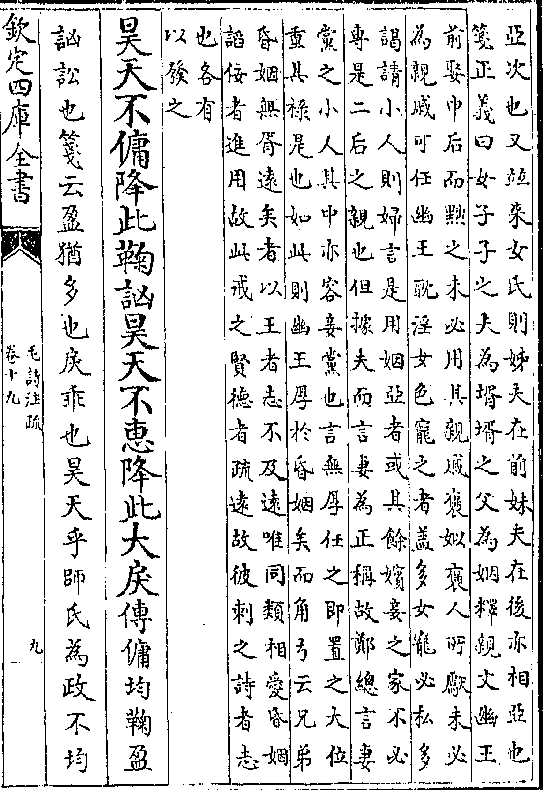 亞次也又竝來女氏則姊夫在前妹夫在後亦相亞也
箋正義曰女子子之夫為壻壻之父為姻釋親文幽王
前娶申后而黜之未必用其親戚襃姒襃人所獻未必
為親戚可任幽王耽淫女色寵之者蓋多女寵必私多
謁請小人則婦言是用姻亞者或其餘嬪妾之家不必
專是二后之親也但據夫而言妻為正稱故鄭總言妻
黨之小人其中亦容妾黨也言無厚任之即置之大位
重其祿是也如此則幽王厚於昏姻矣而角弓云兄弟
昏姻無胥遠矣者以王者志不及遠唯同類相愛昏姻
諂佞者進用故此戒之賢德者疏遠故彼刺之詩者志
也各有
以發之
昊天不傭降此鞠訩昊天不惠降此大戾傳傭均鞠盈
訩訟也箋云盈猶多也戾乖也昊天乎師氏為政不均
欽定四庫全書
毛詩注疏
卷十九
九